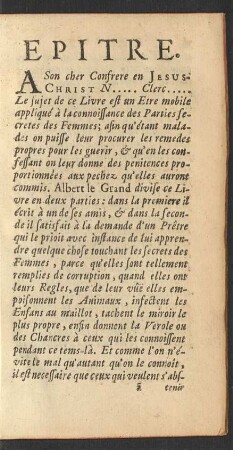 EPITRE.
A Son cher Confrere en JESUS-
CHRIST N..... Clerc.....
Le sujet de ce Livre est un Etre mobile
appliqué à la connoissance des Parties se-
cretes des Femmes; afin qu'étant mala-
des on puisse leur procurer les remedes
propres pour les guerir, & qu'en les con-
fessant on leur donne des penitences pro-
portionnées aux pechez qu'elles auront
commis. Albert le Grand divise ce Li-
vre en deux parties: dans la premiere il
écrit à un de ses amis, & dans la secon-
de il satisfait à la demande d'un Prêtre
qui le prioit avec instance de lui appren-
dre quelque chose touchant les secrets des
Femmes, parce qu'elles sont tellement
remplies de corruption, quand elles ont
leurs Regles, que de leur vûë elles em-
poisonnent les Animaux, infectent les
Enfans au maillot, tachent le miroir le
plus propre, enfin donnent la Verole ou
des Chancres à ceux qui les connoissent
pendant ce tems-là. Et comme l'on n'é-
vite le mal qu'autant qu'on le connoit,
il est necessaire que ceux qui veulent s'abs-
tenir